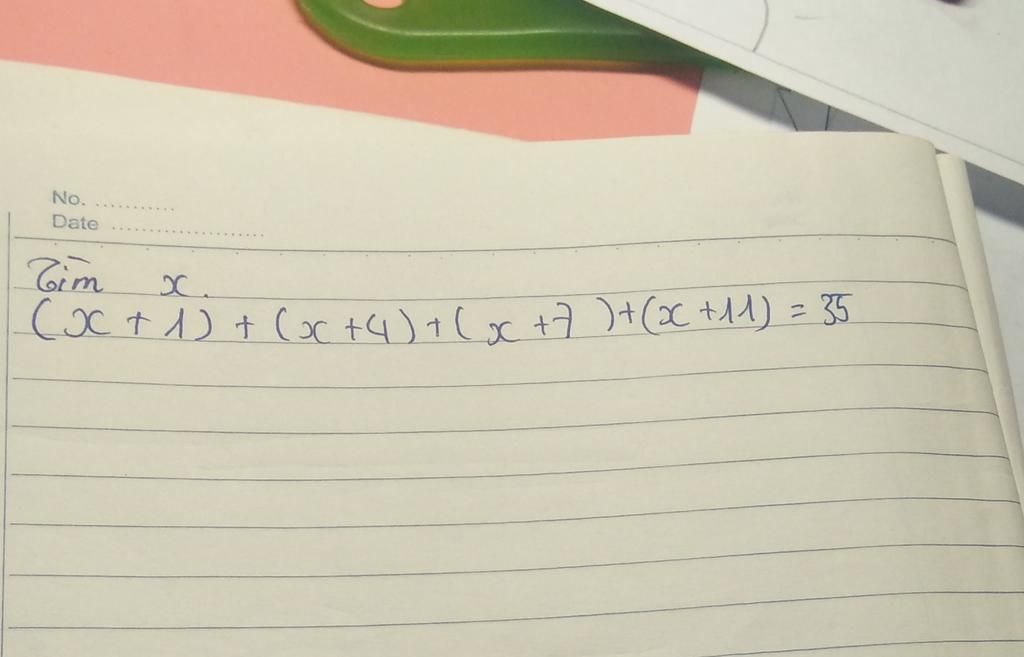 No. ...........
Date ....................
Tìm x.
(x + 1) + (x + 4) + (x + 7) + (x + 11) = 35